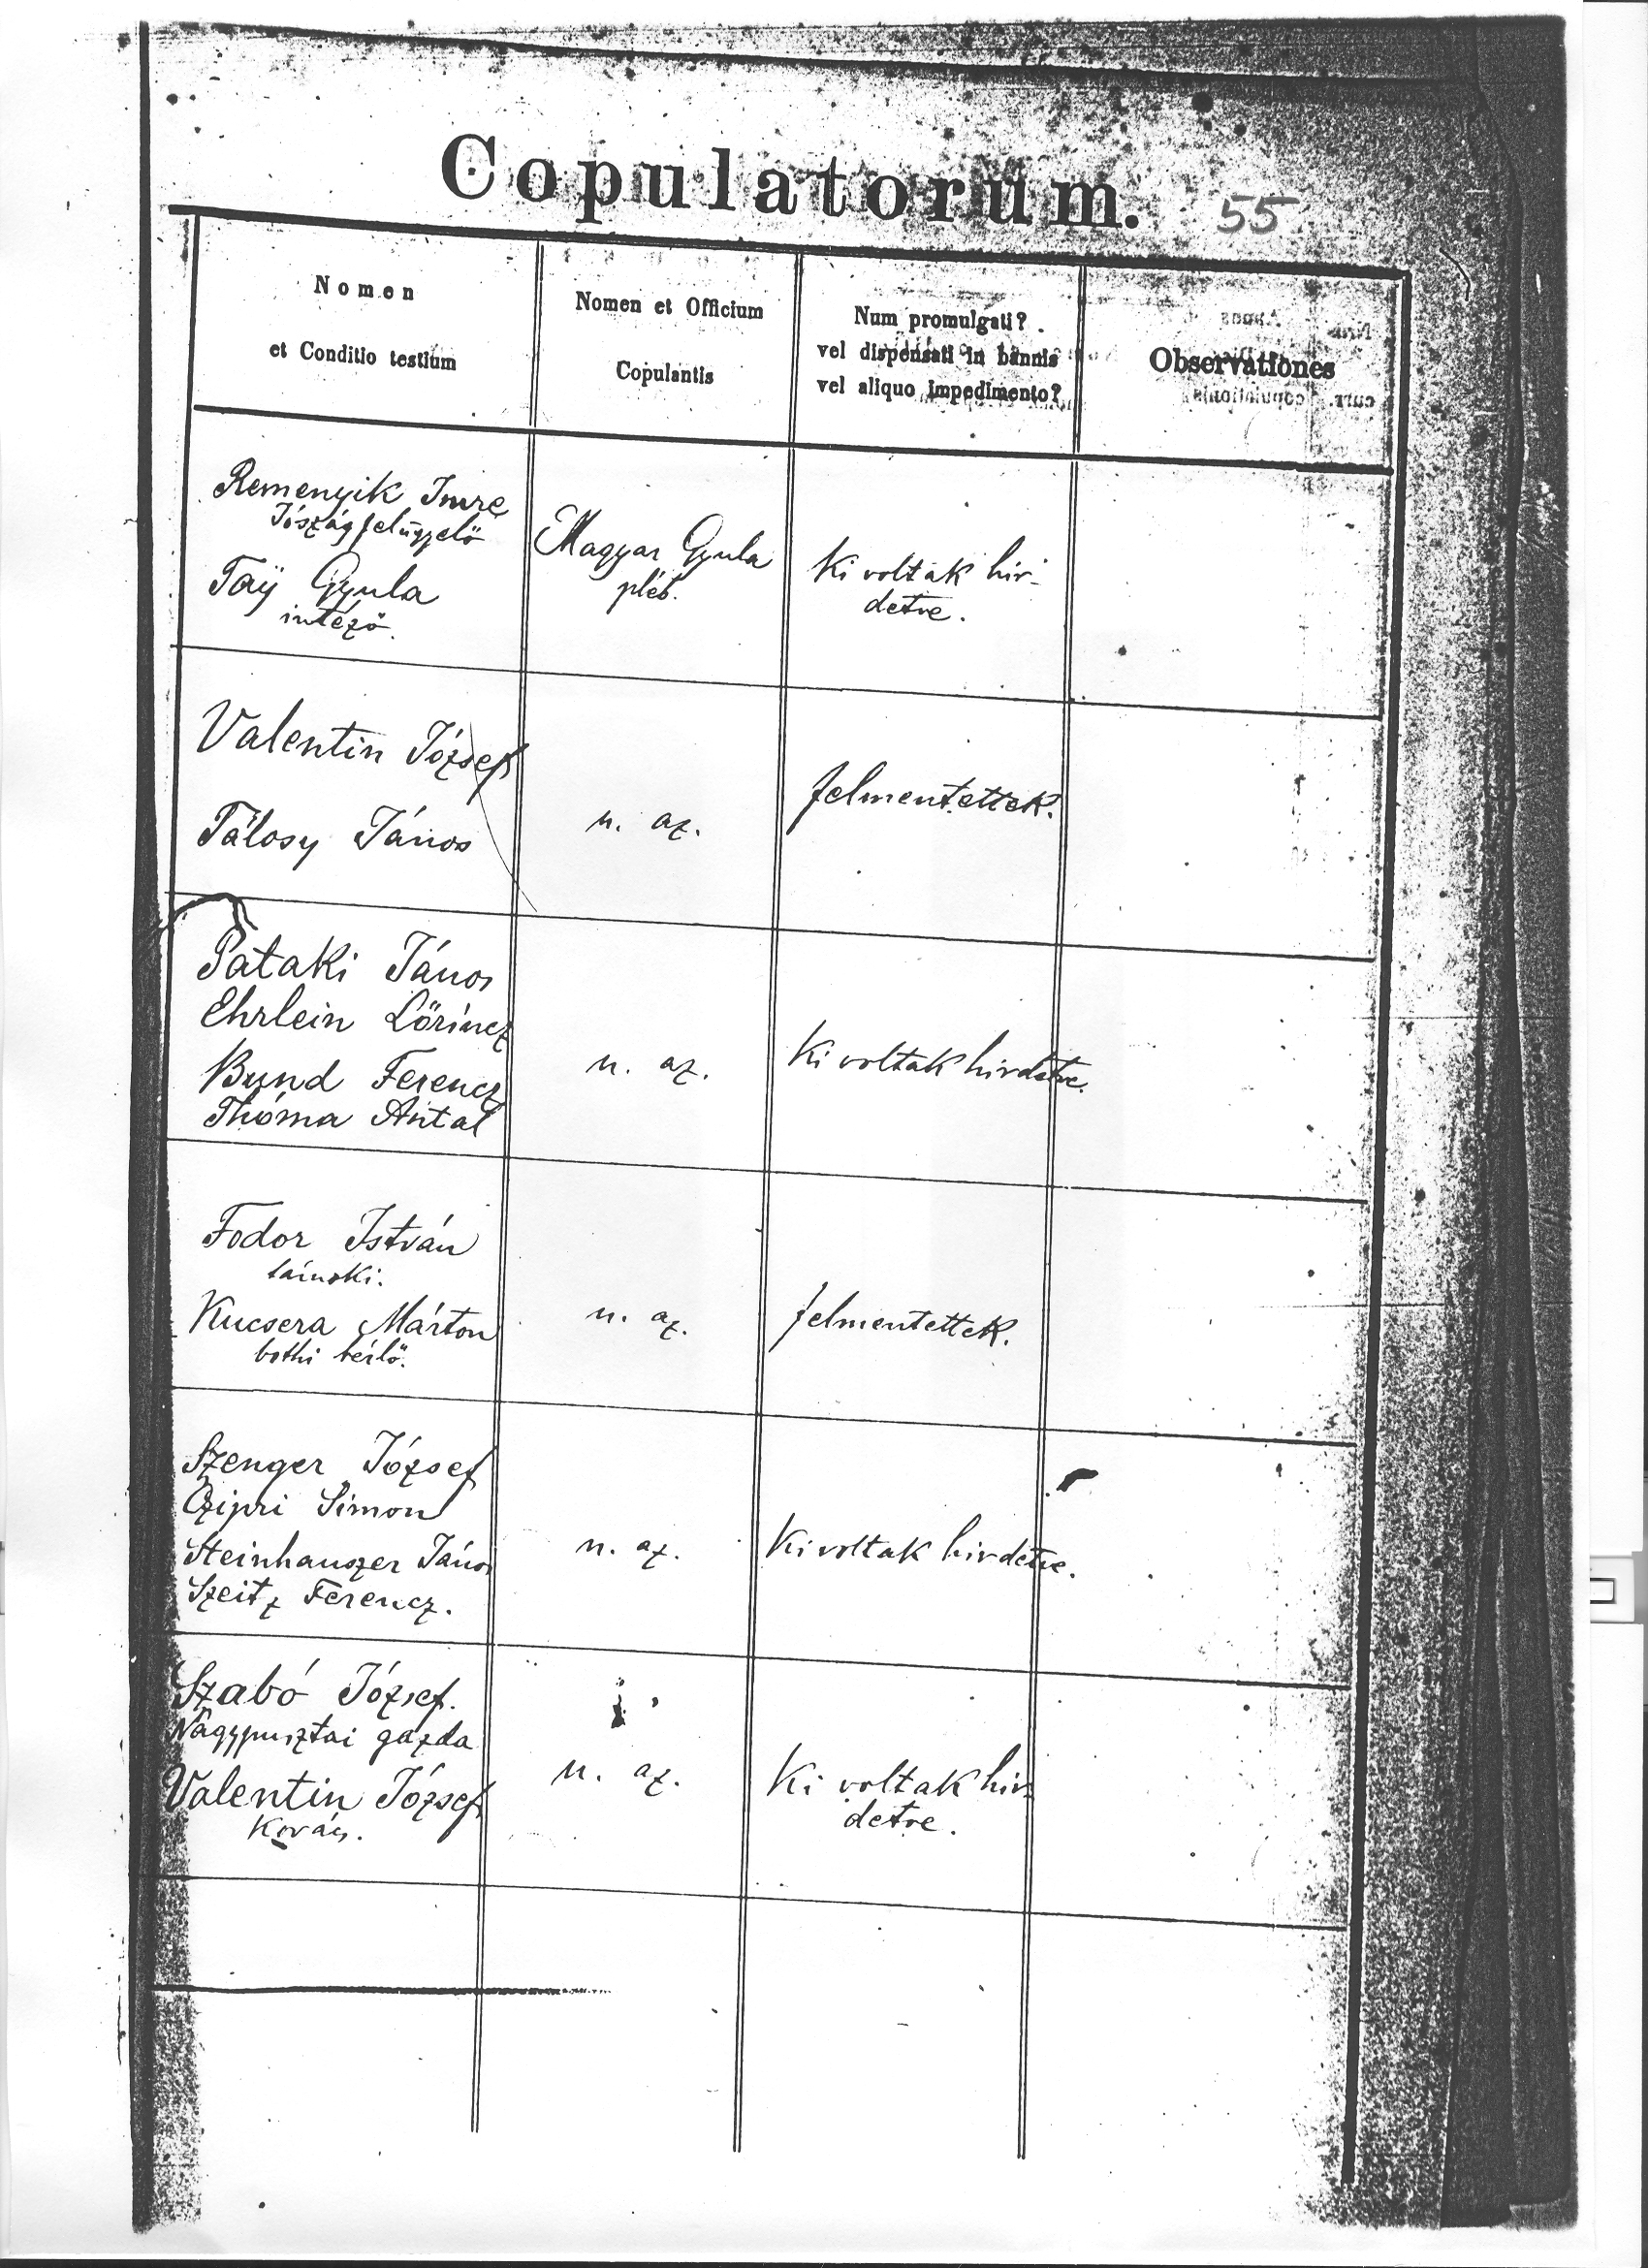 Copulatorum.
55
Nomen
et Conditio testium
Nomen et Officium
Copulantis
Num promulgati?
vel dispensati in bannis
vel aliquo impedimento?
Observationes
Remenyik Imre
Jószágfelügyelő
Taÿ Gyula
intéző.
Magyar Gyula
pléb.
Ki voltak hir-
detve.
Valentin József
Tálosy János
u. az.
felmentettek.
Pataki János
Ehrlein Lőrincz
Bund Ferencz
Thóma Antal
u. az.
Ki voltak hirdetve.
Fodor István
Kucsera Márton
bothi bérlő.
u. az.
felmentettek.
Szenger József
Czipri Simon
Steinhauszer János
Szeitz Ferencz.
u. az.
Ki voltak hirdetve.
Szabó József.
Nagypusztai gazda
Valentin József
Kovács.
u. az.
Ki voltak hir-
detve.